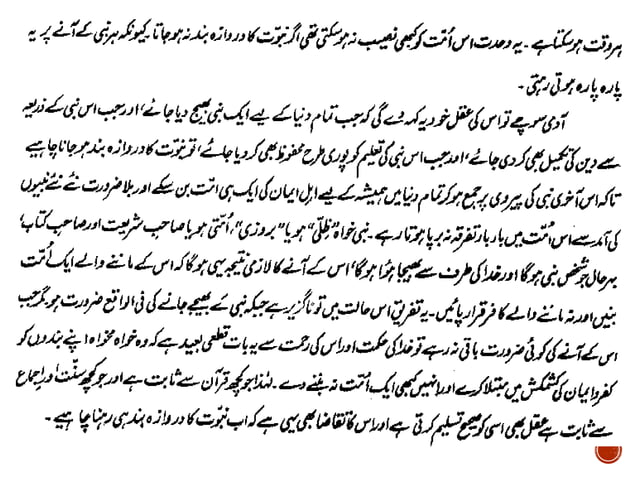 ہر وقت ہو سکتا ہے ۔ یہ وحدت اس اُمت کو کبھی نصیب نہ ہو سکتی تھی اگر نبوّت کا دروازہ بند نہ ہو جاتا ۔ کیونکہ ہر نبی کے آنے پر یہ
پارہ پارہ ہوتی رہتی ۔
آدمی سوچے تو اس کی عقل خود یہ کہہ دے گی کہ جب تمام دنیا کے لیے ایک نبی بھیج دیا جائے، اور جب اس نبی کے ذریعہ
سے دین کی تکمیل بھی کر دی جائے، اور جب اس نبی کی تعلیم کو پوری طرح محفوظ بھی کر دیا جائے، تو نبوّت کا دروازہ بند ہو جانا چاہیے
تاکہ اس آخری نبی کی پیروی پر جمع ہو کر تمام دنیا میں ہمیشہ کے لیے اہل ایمان کی ایک ہی امت بن سکے اور بلا ضرورت نئے نئے نبیوں
کی آمد سے اس اُمت میں بار بار تفرقہ نہ برپا ہوتا رہے ۔ نبی خواہ "ظلّی" ہو یا "بروزی"، اُمتی ہو یا صاحبِ شریعت اور صاحبِ کتاب،
بہرحال جو شخص نبی ہوگا اور خدا کی طرف سے بھیجا ہوا ہوگا، اس کے آنے کا لازمی نتیجہ یہی ہوگا کہ اس کے ماننے والے ایک اُمت
بنیں اور نہ ماننے والے کافر قرار پائیں ۔ یہ تفریق اس حالت میں تو ناگزیر ہے جبکہ نبی کے بھیجے جانے کی فی الواقع ضرورت ہو، مگر جب
اس کے آنے کی کوئی ضرورت باقی نہ رہے تو خدا کی حکمت اور اس کی رحمت سے یہ بات قطعی بعید ہے کہ وہ خواہ مخواہ اپنے بندوں کو
کفر و ایمان کی کشمکش میں مبتلا کرے اور انہیں کبھی ایک اُمت نہ بننے دے ۔ لہٰذا جو کچھ قرآن سے ثابت ہے اور جو کچھ سنّت اور اجماع
سے ثابت ہے عقل بھی اسی کو صحیح تسلیم کرتی ہے اور اس کا تقاضا بھی یہی ہے کہ اب نبوّت کا دروازہ بند ہی رہنا چاہیے ۔